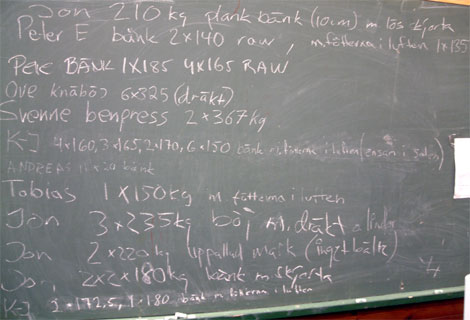 Jon 210 kg plank bänk (10cm) m lös tjorta
Peter E bänk 2x140 raw, m fötterna i luften 1x185
PELLE BÄNK 1X185 4x165 RAW
Ove knäböj 6x325 (dräkt)
Svenne benpress 2x367kg
K-J 4x160, 3x165, 2x170, 6x150 bänk m fötterna i luften (ensam i salen)
ANDREAS bänk
Tobias 1x150kg m. fötterna i luften
Jon 3x235kg böj m. dräkt o lindor
Jon 2x220kg uppallad mark (inget bälte)
Jon 2x2x180kg bänk m skjorta
K-J 1x172,5, 1x180 bänk m fötterna i luften